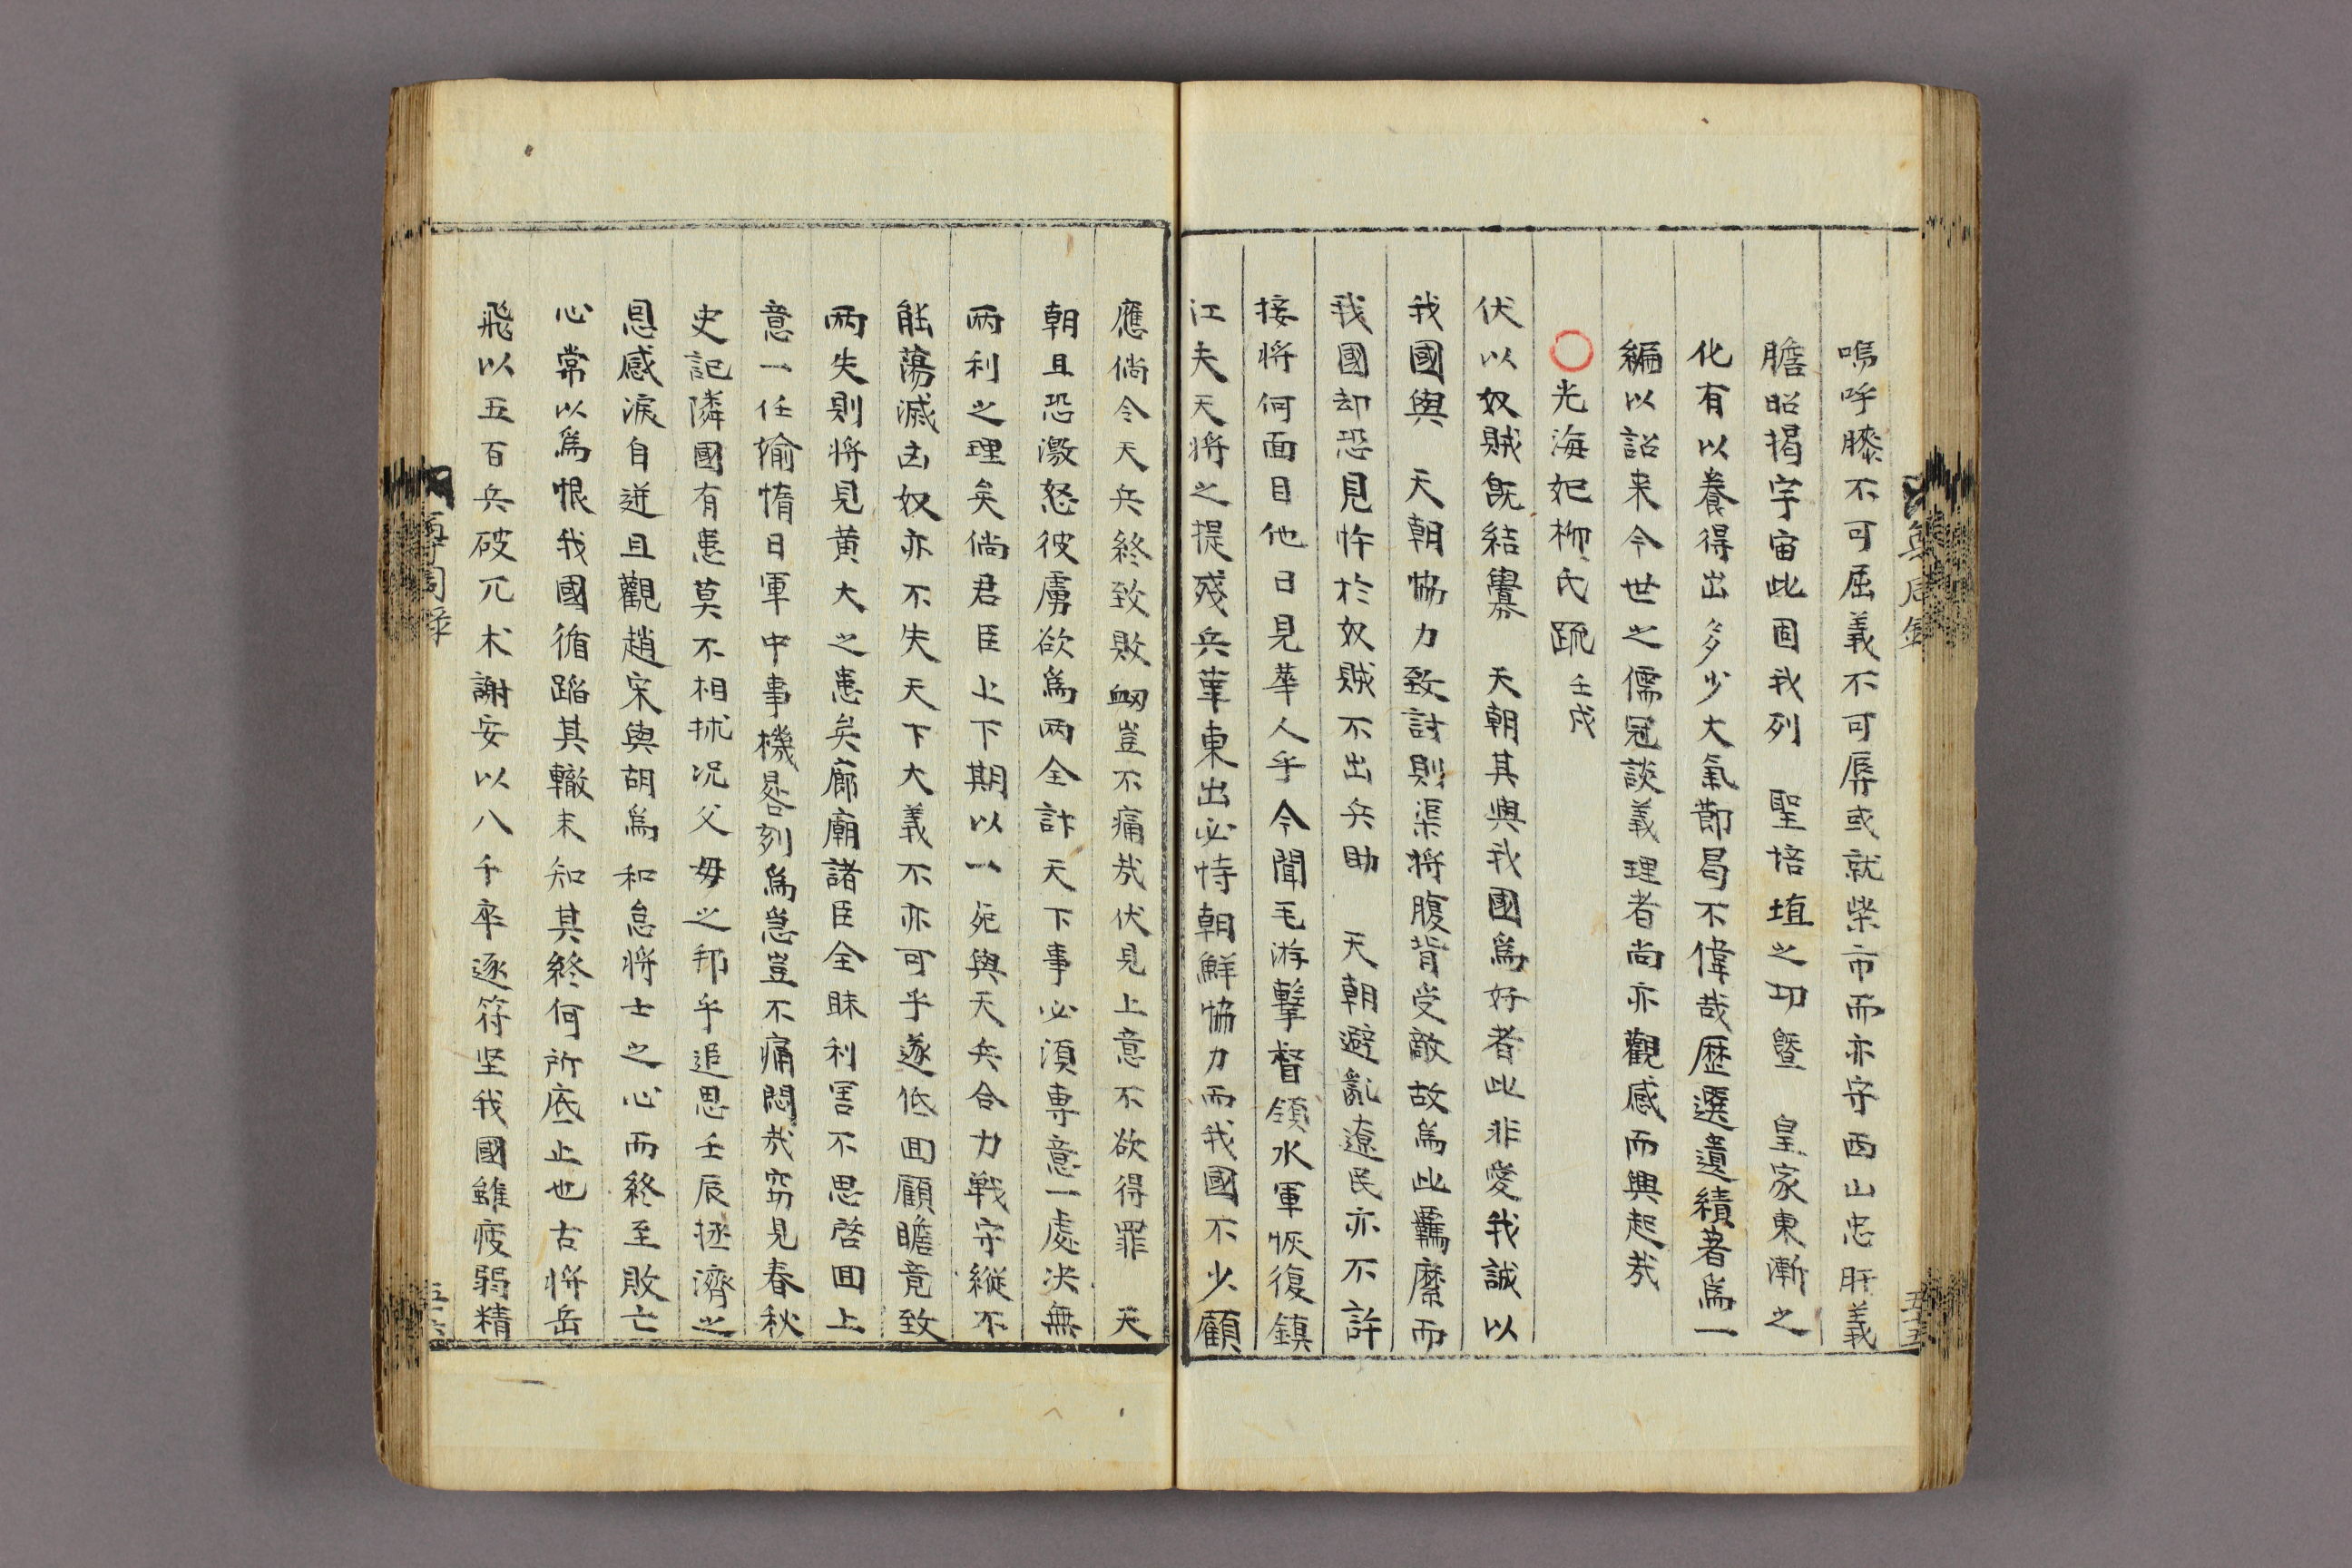 嗚呼膝不可屈義不可辱或就柴市而亦守西山忠肝義
膽昭揭宇宙此固我列 聖培埴之功曁 皇家東漸之
化有以養得出多少大氣節曷不偉哉歷選遺績著爲一
編以詔来今世之儒冠談義理者尚亦觀感而興起㢤
○光海妃柳氏䟽 壬戌
伏以奴賊旣結釁 天朝其與我國爲好者此非愛我誠以
我國與 天朝協力致討則渠将腹背受敵故爲此羈縻而
我國却恐見忤於奴賊不出兵助 天朝避亂遼民亦不許
接将何面目他日見華人乎今聞毛游擊督領水軍恢復鎮
江夫天将之提殘兵華東出必恃朝鮮協力而我國不少顧
應倘令天兵終致敗衂豈不痛㢤伏見上意不欲得罪 天
朝且恐激怒彼虜欲爲兩全計天下事必湏專意一處决無
兩利之理矣倘君臣上下期以一死與天兵合力戰守縱不
能蕩滅凶奴亦不失天下大義不亦可乎遂低囬顧瞻竟致
兩失則将見黃大之患矣廊廟諸臣全昧利害不思啓囬上
意一任媮惰日軍中事機晷刻爲急豈不痛悶㢤窃見春秋
史記隣國有患莫不相捄况父母之邦乎追思壬辰拯濟之
恩感淚自迸且觀趙宋與胡爲和怠将士之心而終至敗亡
心常以爲恨我國循蹈其轍未知其終何所底止也古将岳
飛以五百兵破兀朮謝安以八千卒逐符坚我國雖疲弱精
五十五
五十六